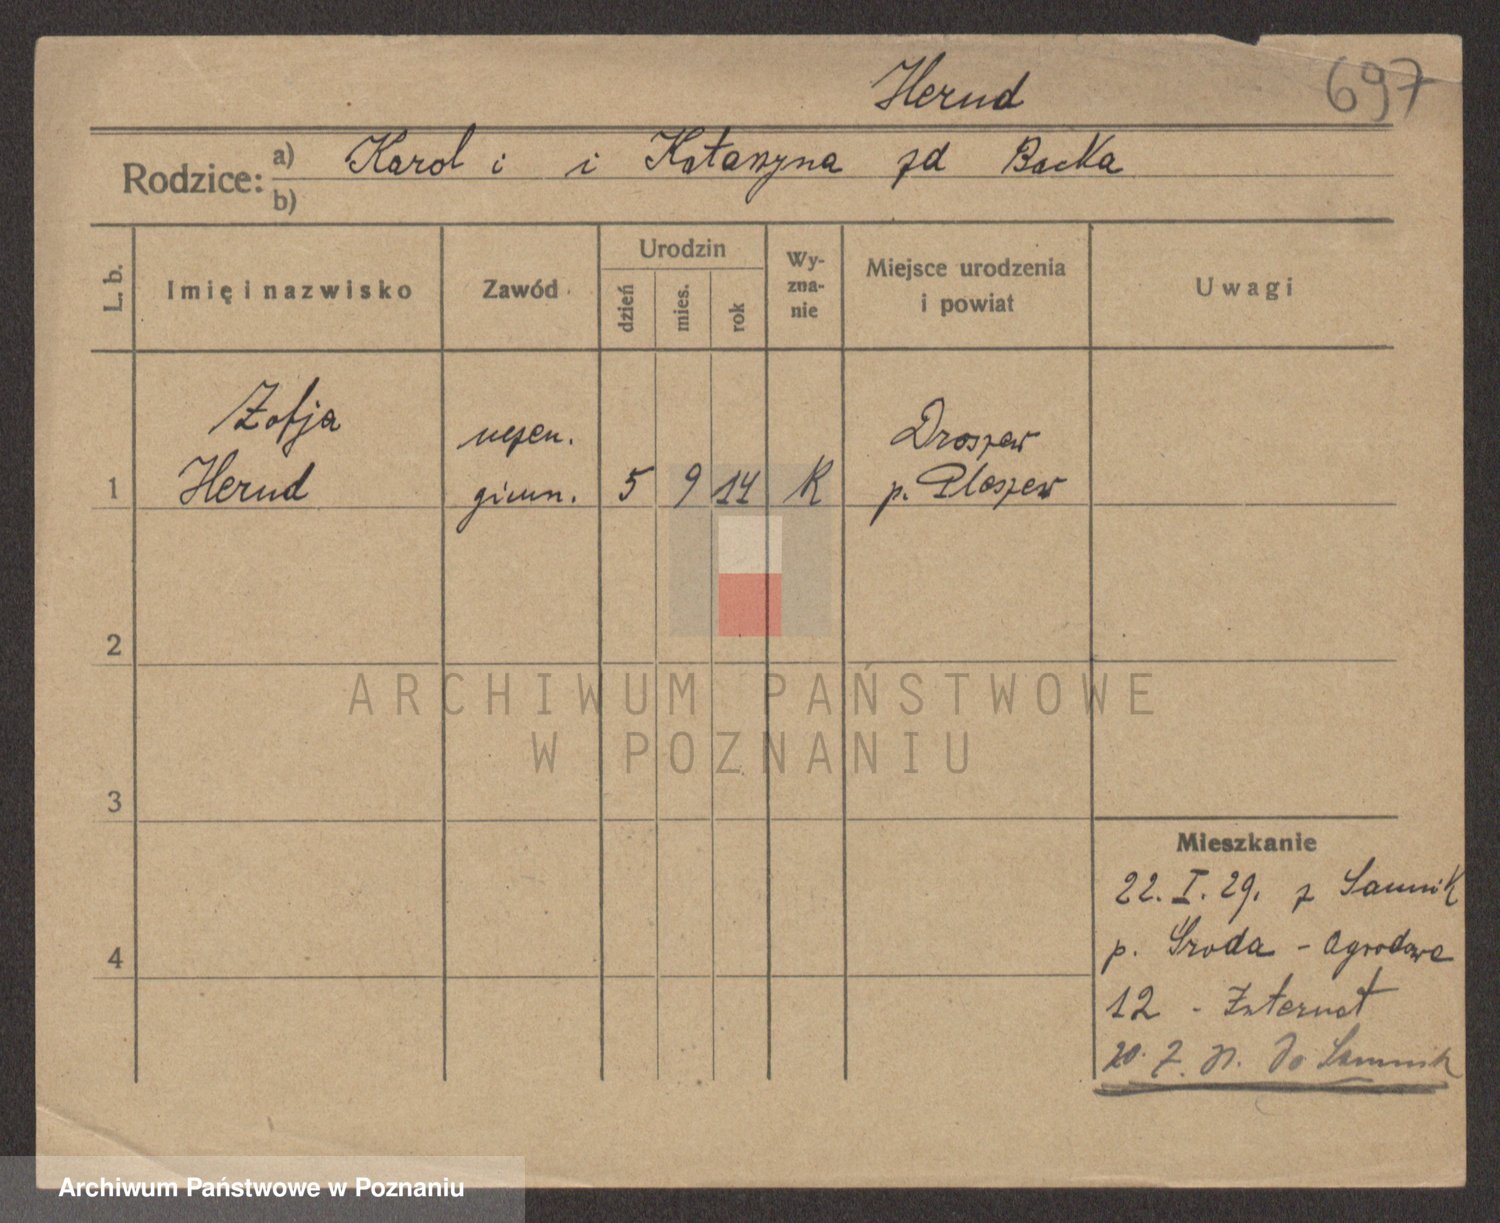 Herud
697
Rodzice:
a) Karol i i Katarzyna zd Backa
b)
L. b.
Imię i nazwisko
Zawód
Urodzin
dzień
mies.
rok
Wy-
zna-
nie
Miejsce urodzenia
i powiat
Uwagi
Zofja
uczen.
Droszew
1 Herud gimn. 5 9 14 K p. Pleszew
2
3
4
ARCHIWUM PAŃSTWOWE
W POZNANIU
Mieszkanie
22. I. 29. z
p. Środa - Ogrodowa
12 - Internat
do
Archiwum Państwowe w Poznaniu